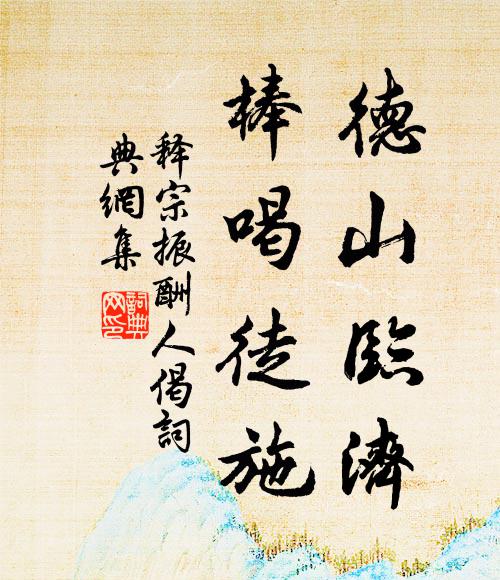 德山臨濟
棒喝徒施
释宗振酬人偈詞
典網集
詞典網印